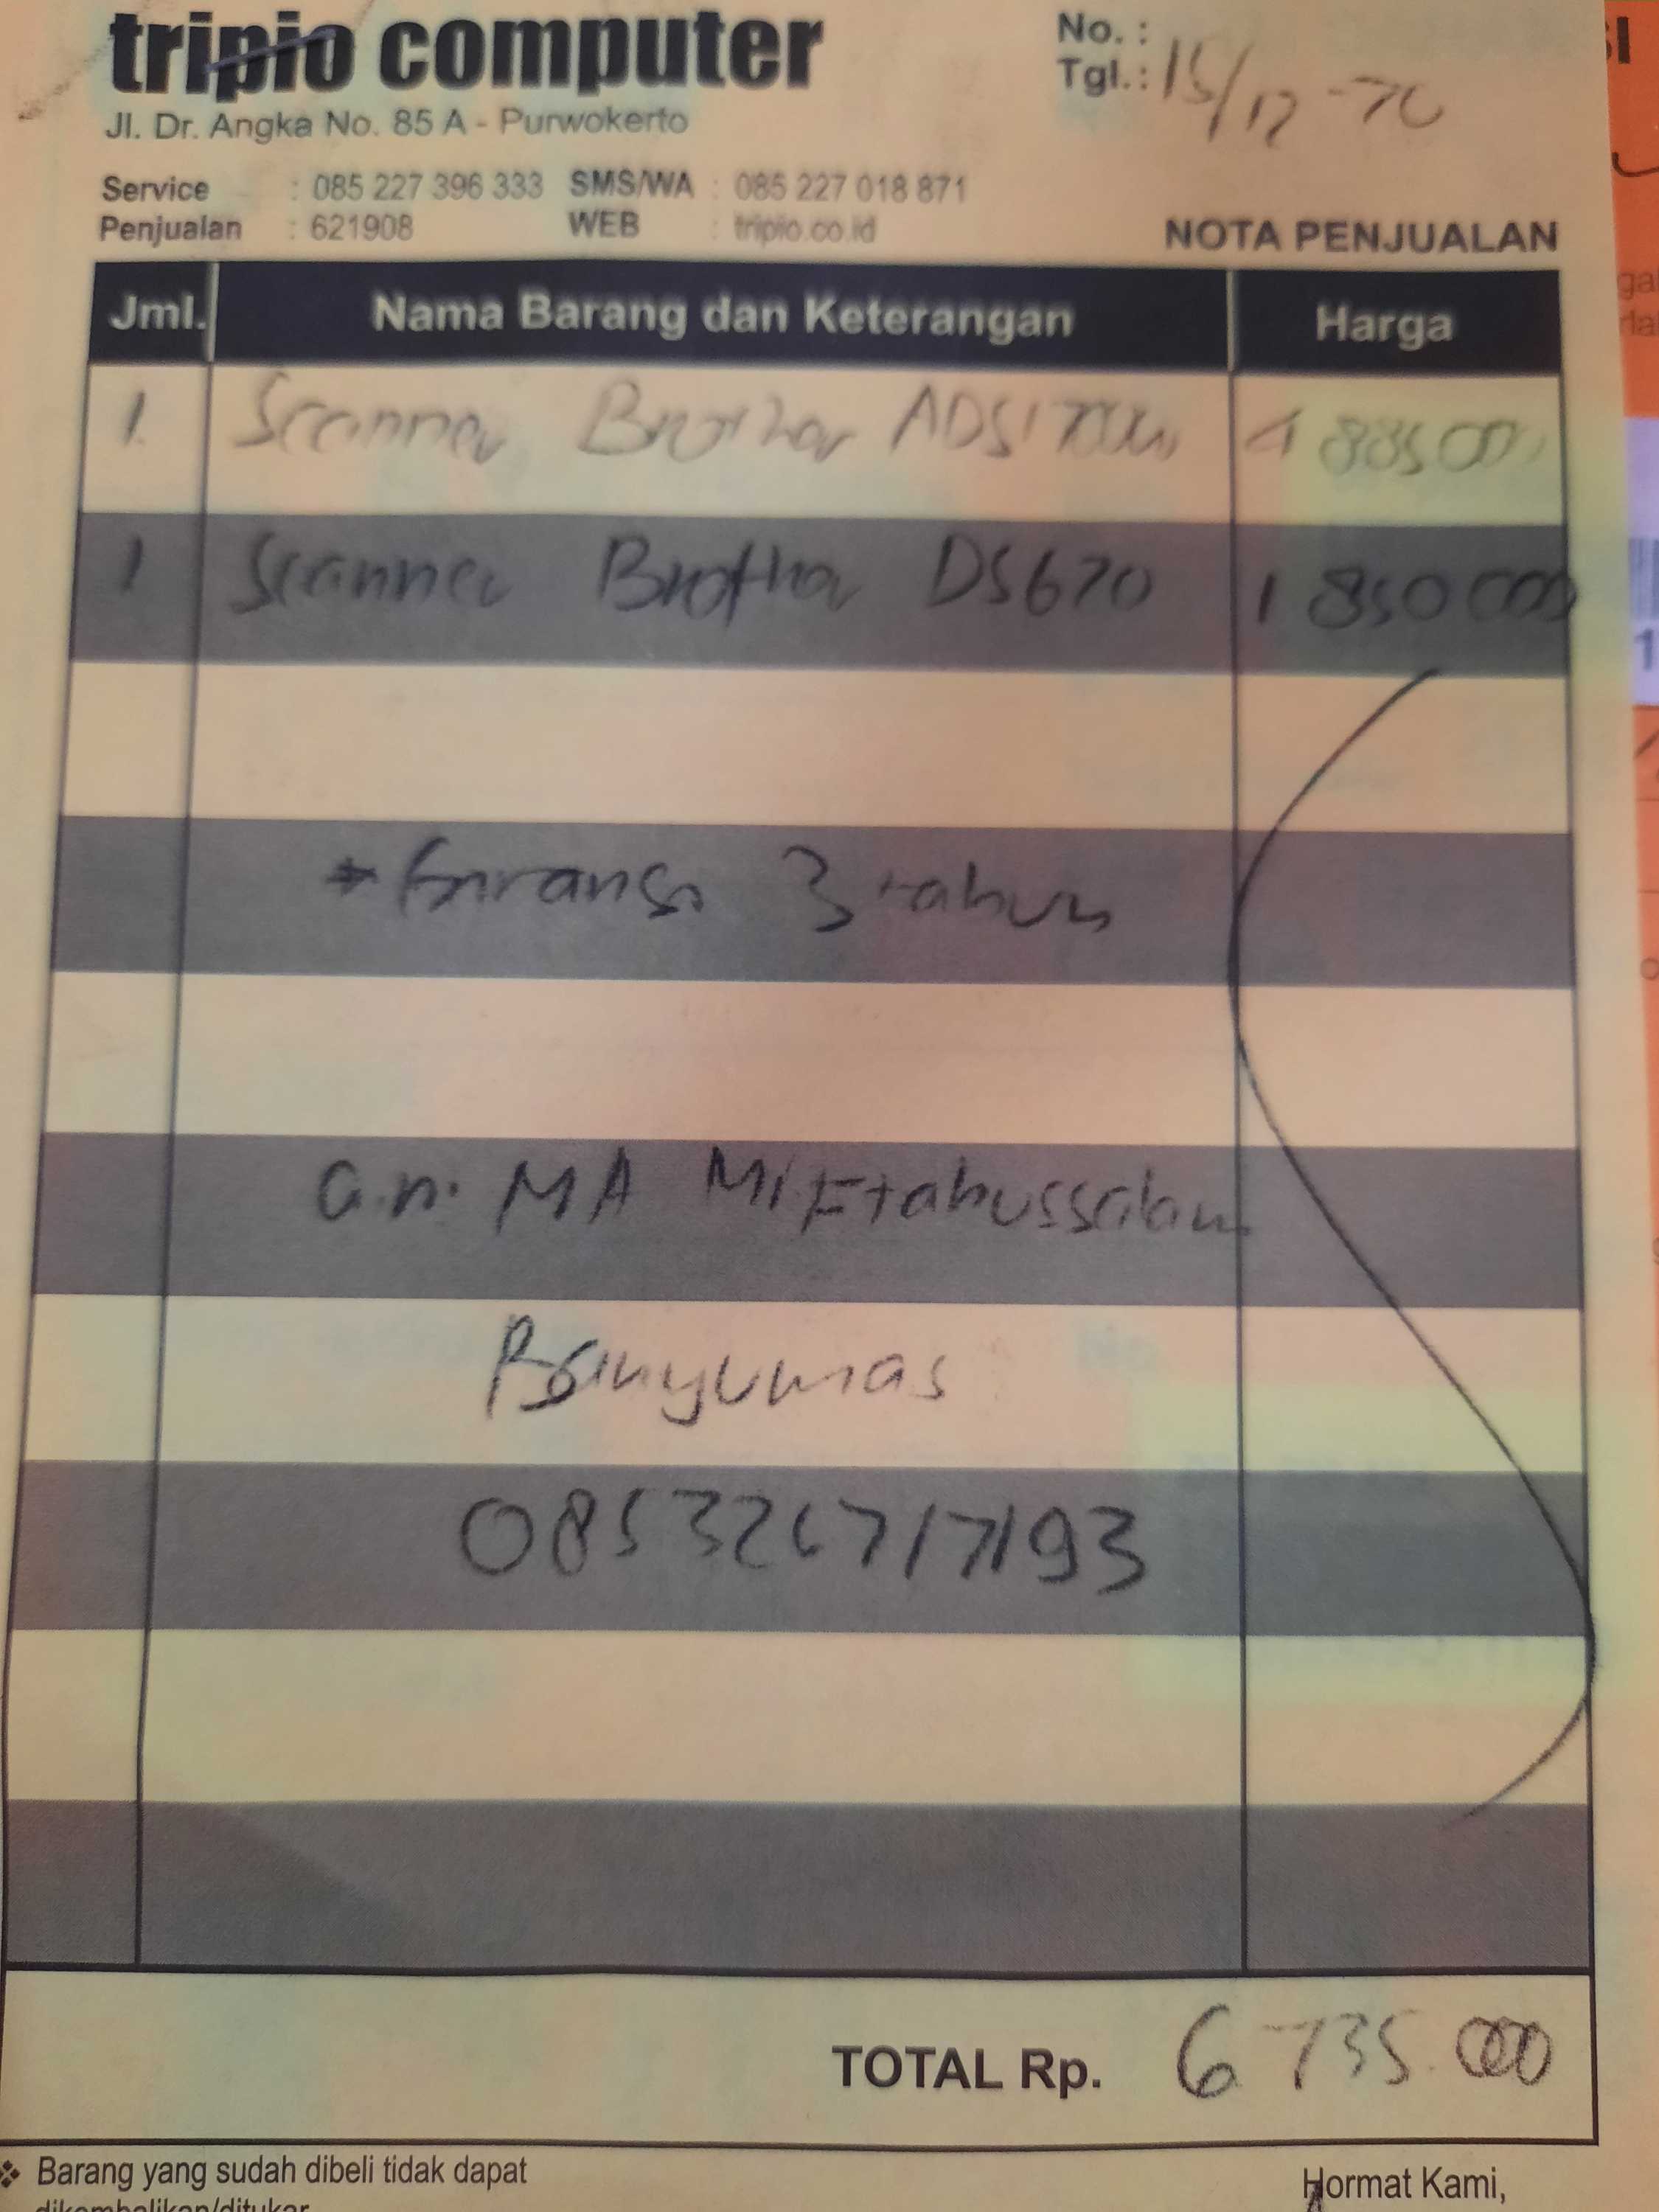 tripio computer
Jl. Dr. Angka No. 85 A - Purwokerto
No. :
Tgl. : 15/12-20
Service : 085 227 396 333 SMS/WA : 085 227 018 871
Penjualan : 621908 WEB : tripio.co.id
NOTA PENJUALAN
Jml. Nama Barang dan Keterangan Harga
1 Scanner Brother ADS1700W 4 885 000
1 Scanner Brother DS620 1 850 000
* Garansi 3 tahun
a.n. MA Miftahussalam
Banyumas
085326717193
TOTAL Rp. 6.735.000
❖ Barang yang sudah dibeli tidak dapat
dikembalikan/ditukar
Hormat Kami,